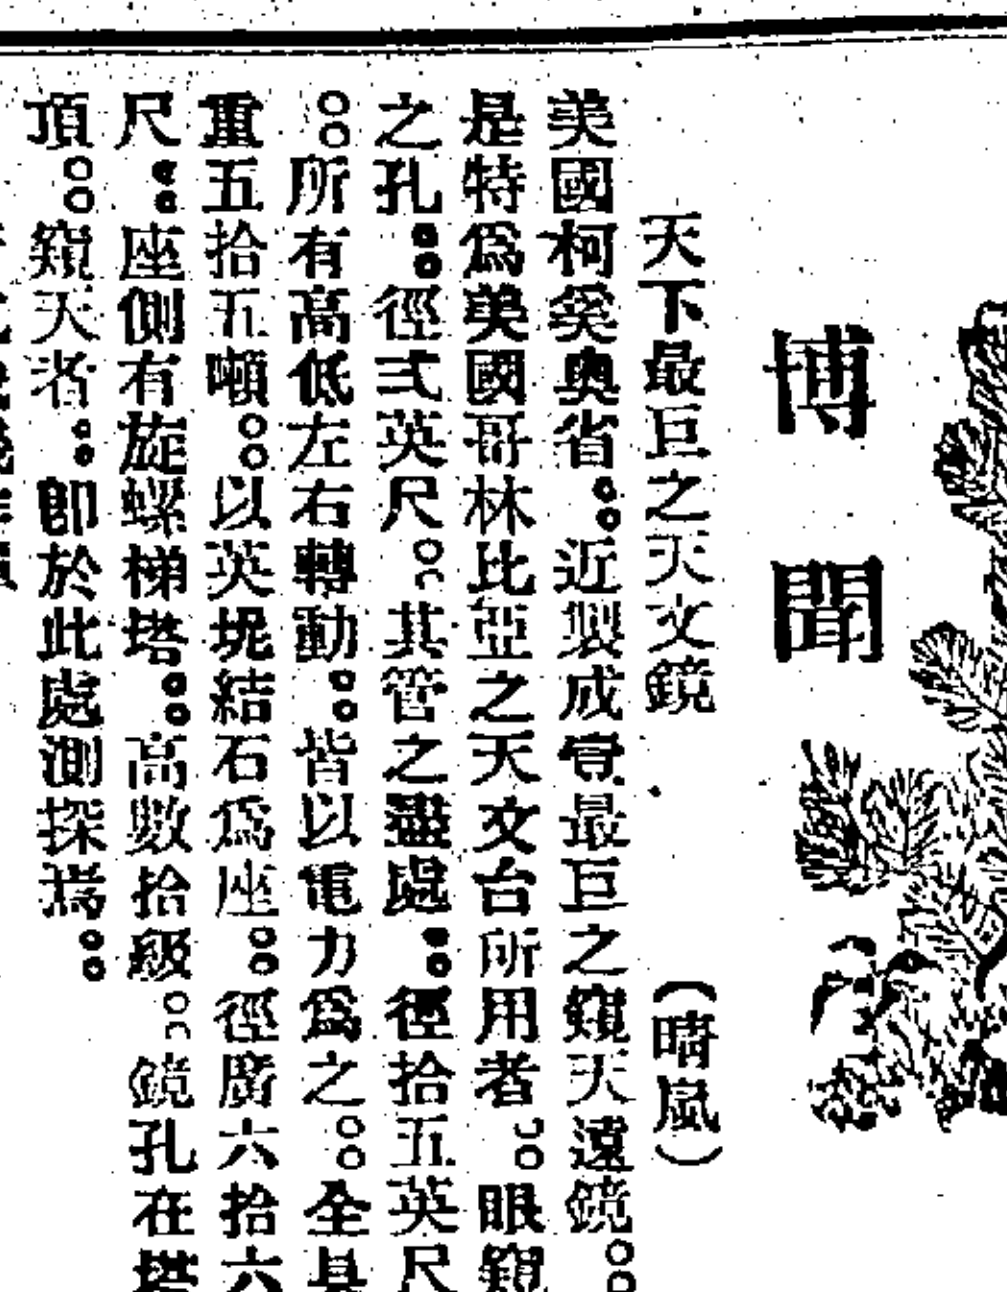 博聞
天下最巨之天文鏡 (晴嵐)
美國柯奚奧省。。近製成實最巨之窺天遠鏡。。
是特爲美國哥林比亞之天文台所用者。。眼窺
之孔。。徑弍英尺。。其管之盡處。。徑拾五英尺
。。所有高低左右轉動。。皆以電力爲之。。全具
重五拾五噸。。以英坭結石爲座。。徑廣六拾六
尺。。座側有旋螺梯塔。。高數拾級。。鏡孔在塔
頂。。窺天者。。卽於此處測探焉。。